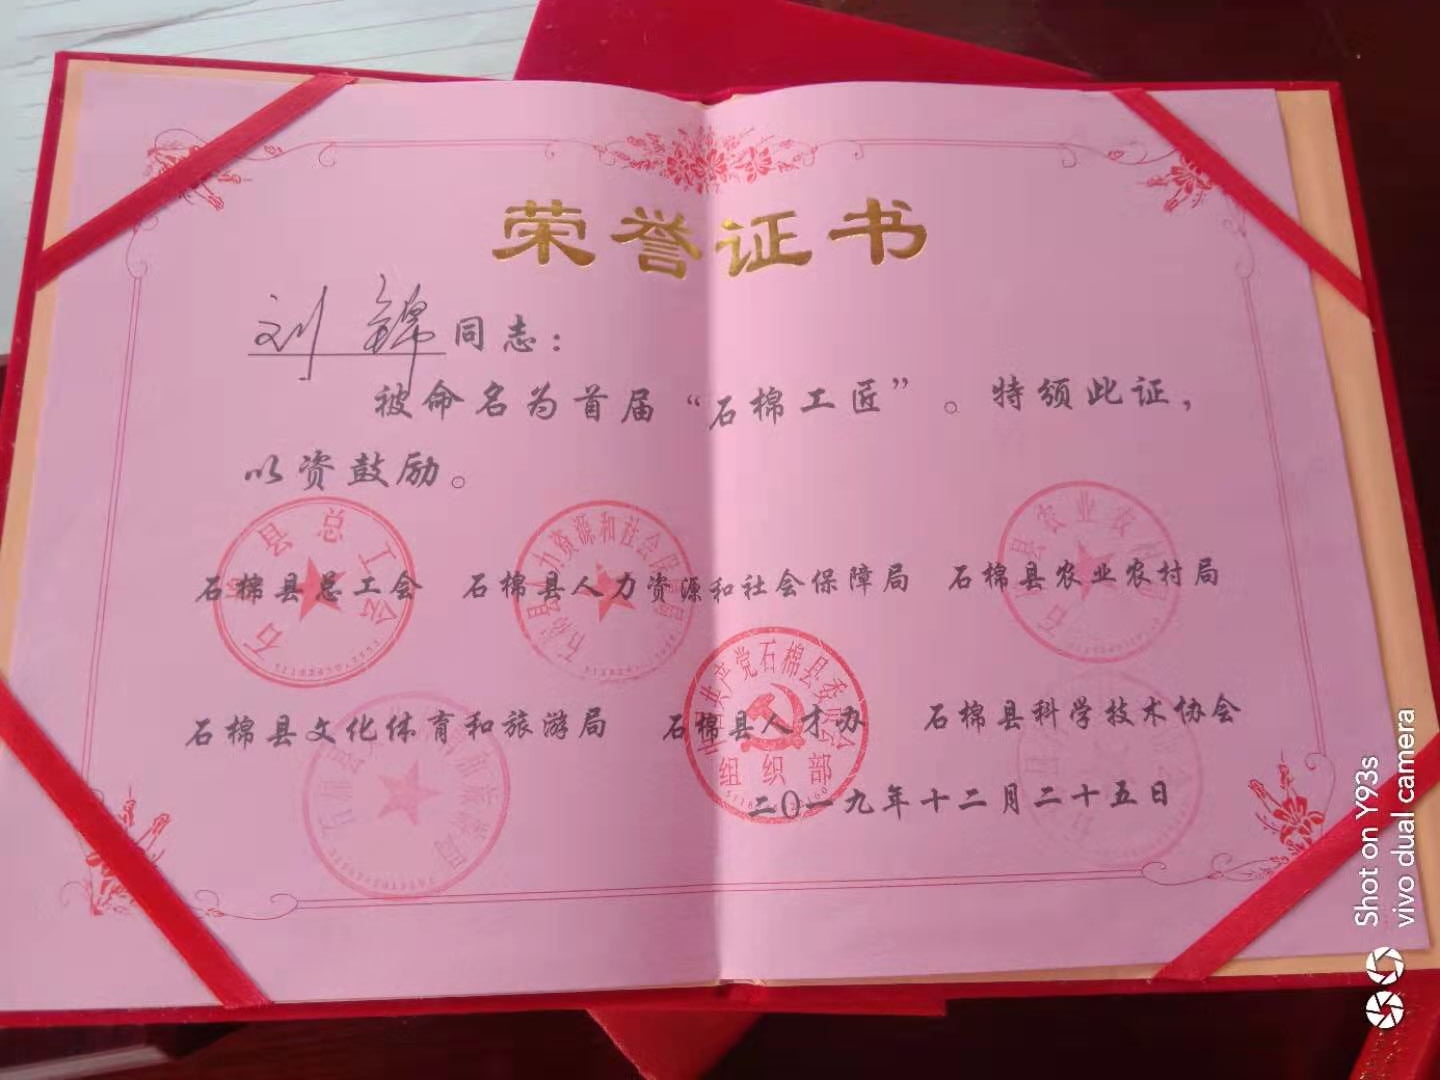 荣誉证书
刘锦同志：
被命名为首届“石棉工匠”。特颁此证，
以资鼓励。
石棉县总工会 石棉县人力资源和社会保障局 石棉县农业农村局
石棉县文化体育和旅游局 石棉县人才办 石棉县科学技术协会
二〇一九年十二月二十五日
石棉县总工会
石棉县人力资源和社会保障局
石棉县农业农村局
中国共产党石棉县委员会
组织部
Shot on Y93s
vivo dual camera